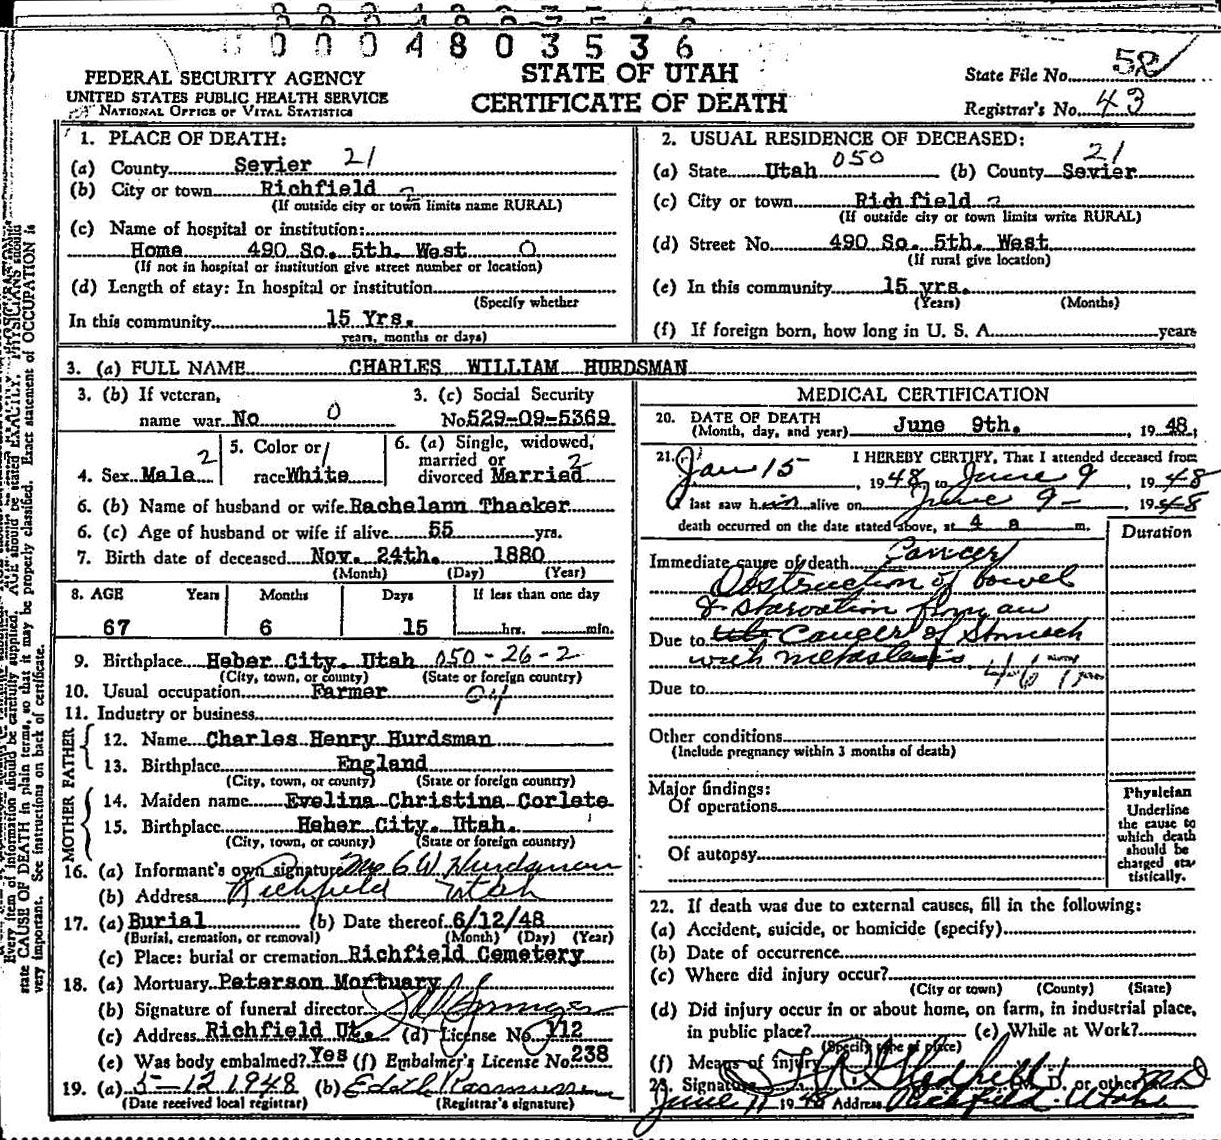 0 0 0 4 8 0 3 5 3 6
FEDERAL SECURITY AGENCY
UNITED STATES PUBLIC HEALTH SERVICE
NATIONAL OFFICE OF VITAL STATISTICS
STATE OF UTAH
CERTIFICATE OF DEATH
State File No. 52
Registrar's No. 43
1. PLACE OF DEATH:
(a) County Sevier 21
(b) City or town Richfield 2
(If outside city or town limits name RURAL)
(c) Name of hospital or institution:
Home 490 So. 5th. West 0
(If not in hospital or institution give street number or location)
(d) Length of stay: In hospital or institution
(Specify whether
In this community 15 Yrs.
years, months or days)
2. USUAL RESIDENCE OF DECEASED:
(a) State Utah 050 (b) County Sevier 21
(c) City or town Richfield 2
(If outside city or town limits write RURAL)
(d) Street No. 490 So. 5th. West
(If rural give location)
(e) In this community 15 yrs.
(Years) (Months)
(f) If foreign born, how long in U. S. A. years
3. (a) FULL NAME CHARLES WILLIAM HURDSMAN
3. (b) If veteran, name war No 0
3. (c) Social Security No. 529-09-5369
4. Sex Male 2
5. Color or race White
6. (a) Single, widowed, married or divorced Married 2
6. (b) Name of husband or wife Rachelann Thacker
6. (c) Age of husband or wife if alive 55 yrs.
7. Birth date of deceased Nov. 24th. 1880
(Month) (Day) (Year)
8. AGE Years Months Days If less than one day
67 6 15 hrs. min.
9. Birthplace Heber City. Utah 050-26-2
(City, town, or county) (State or foreign country)
10. Usual occupation Farmer 04
11. Industry or business
FATHER
12. Name Charles Henry Hurdsman
13. Birthplace England
(City, town, or county) (State or foreign country)
MOTHER
14. Maiden name Evelina Christina Corlete
15. Birthplace Heber City. Utah.
(City, town, or county) (State or foreign country)
16. (a) Informant's own signature Mrs C W Hurdsman
(b) Address Richfield Utah
17. (a) Burial (b) Date thereof 6/12/48
(Burial, cremation, or removal) (Month) (Day) (Year)
(c) Place: burial or cremation Richfield Cemetery
18. (a) Mortuary Peterson Mortuary
(b) Signature of funeral director
(c) Address Richfield Ut. (d) License No. 112
(e) Was body embalmed? Yes (f) Embalmer's License No. 238
19. (a) 5-12 1948 (b) Edith Rasmussen
(Date received local registrar) (Registrar's signature)
MEDICAL CERTIFICATION
20. DATE OF DEATH
(Month, day, and year) June 9th. , 19 48;
21. I HEREBY CERTIFY, That I attended deceased from
Jan 15 , 19 48, to June 9 , 19 48
I last saw him alive on June 9- , 19 48
death occurred on the date stated above, at 4 a m.
Duration
Immediate cause of death Cancer
Obstruction of bowel
& starvation from an
Due to Cancer of Stomach
with metastasis 46
Due to
Other conditions
(Include pregnancy within 3 months of death)
Major findings:
Of operations
Of autopsy
Physician
Underline
the cause to
which death
should be
charged sta
tistically.
22. If death was due to external causes, fill in the following:
(a) Accident, suicide, or homicide (specify)
(b) Date of occurrence
(c) Where did injury occur?
(City or town) (County) (State)
(d) Did injury occur in or about home, on farm, in industrial place,
in public place? (e) While at Work?
(Specify type of place)
(f) Means of injury
23. Signature M. D. or other
June 11 19 48 Address Richfield Utah
Every item of information should be carefully supplied. AGE should be stated EXACTLY. PHYSICIANS should
state CAUSE OF DEATH in plain terms, so that it may be properly classified. Exact statement of OCCUPATION is
very important. See instructions on back of certificate.